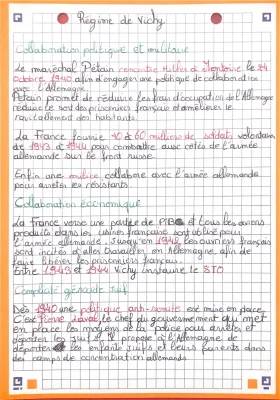 Régime de Vichy
Collaboration politique et militaire
Le maréchal Pétain rencontre Hitler à Montoire le 24
octobre 1940 afin d'engager une politique de collaboration
avec l'Allemagne.
Pétain promet de réduire les frais d'occupation de l'Allemagne
réduire le sort des prisonniers français et améliorer le
ravitaillement des habitants.
La France fournie 40 à 60 milliers de soldats volontaires
de 1943 à 1944 pour combattre aux côtés de l'armée
allemande sur le front russe.
Enfin une milice collabore avec l'armée allemande
pour arrêter les résistants.
Collaboration économique
La France verse une partie de PIB et tous les avions
produits dans les usines françaises sont obligé pour
l'armée allemande. Jusqu'en 1942 les ouvriers français
sont incités d'aller travailler en Allemagne afin de
faire libérer les prisonniers français.
Entre 1943 et 1944 Vichy instaure le STO
Complicité génocide Juif
Dès 1940 une politique anti-sémite est mise en place
C'est Pierre Laval, le chef du gouvernement qui met
en place les moyens de la police pour arrêter et
déporter les juifs. Il propose à l'Allemagne de
déporter les enfants juifs et leurs parents dans
des camps de concentration allemands.